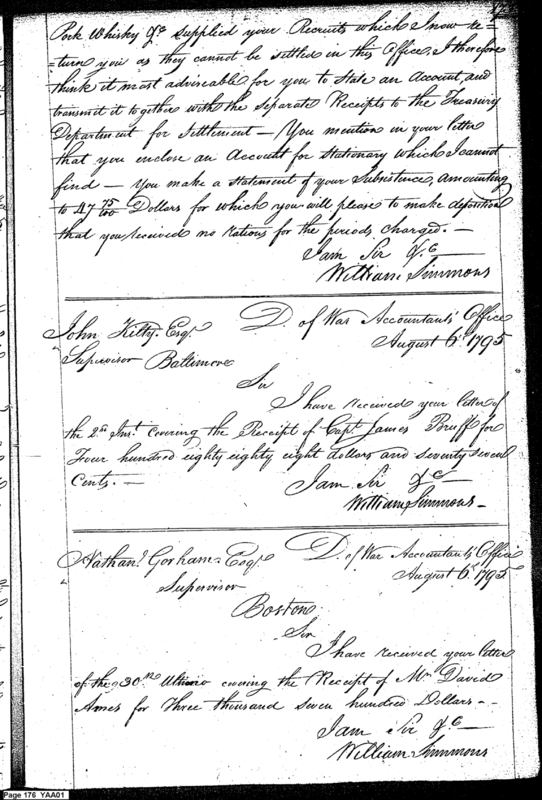 Pork Whisky &c supplied your Recruits which I now re-
-turn you as they cannot be settled in this Office, I therefore
think it most adviseable for you to State an Account, and
transmit it together with the separate Receipts to the Treasury
Department for Settlement — You mention in your letter
that you enclose an Account for Stationary which I cannot
find — You make a statement of your Subsistence, amounting
to 47 75/100 Dollars for which you will please to make deposition
that you received no Rations for the periods charged. —
I am Sir &c —
William Simmons
John Kilty Esqr. D. of War Accountants' Office
Supervisor Baltimore August 6th. 1795
Sir
I have received your letter of
the 2nd Inst. covering the Receipt of Capt James Bruff for
Four hundred eighty eighty eight dollars and seventy seven
Cents. — I am Sir &c —
William Simmons —
Nathanl. Gorham Esqr. D. of War Accountants' Office
Supervisor August 6th. 1795
Boston
Sir
I have received your letter
of the 30th Ultimo covering the Receipt of Mr David
Ames for Three thousand seven hundred Dollars - -
I am Sir &c —
William Simmons
Page 176 YAA01